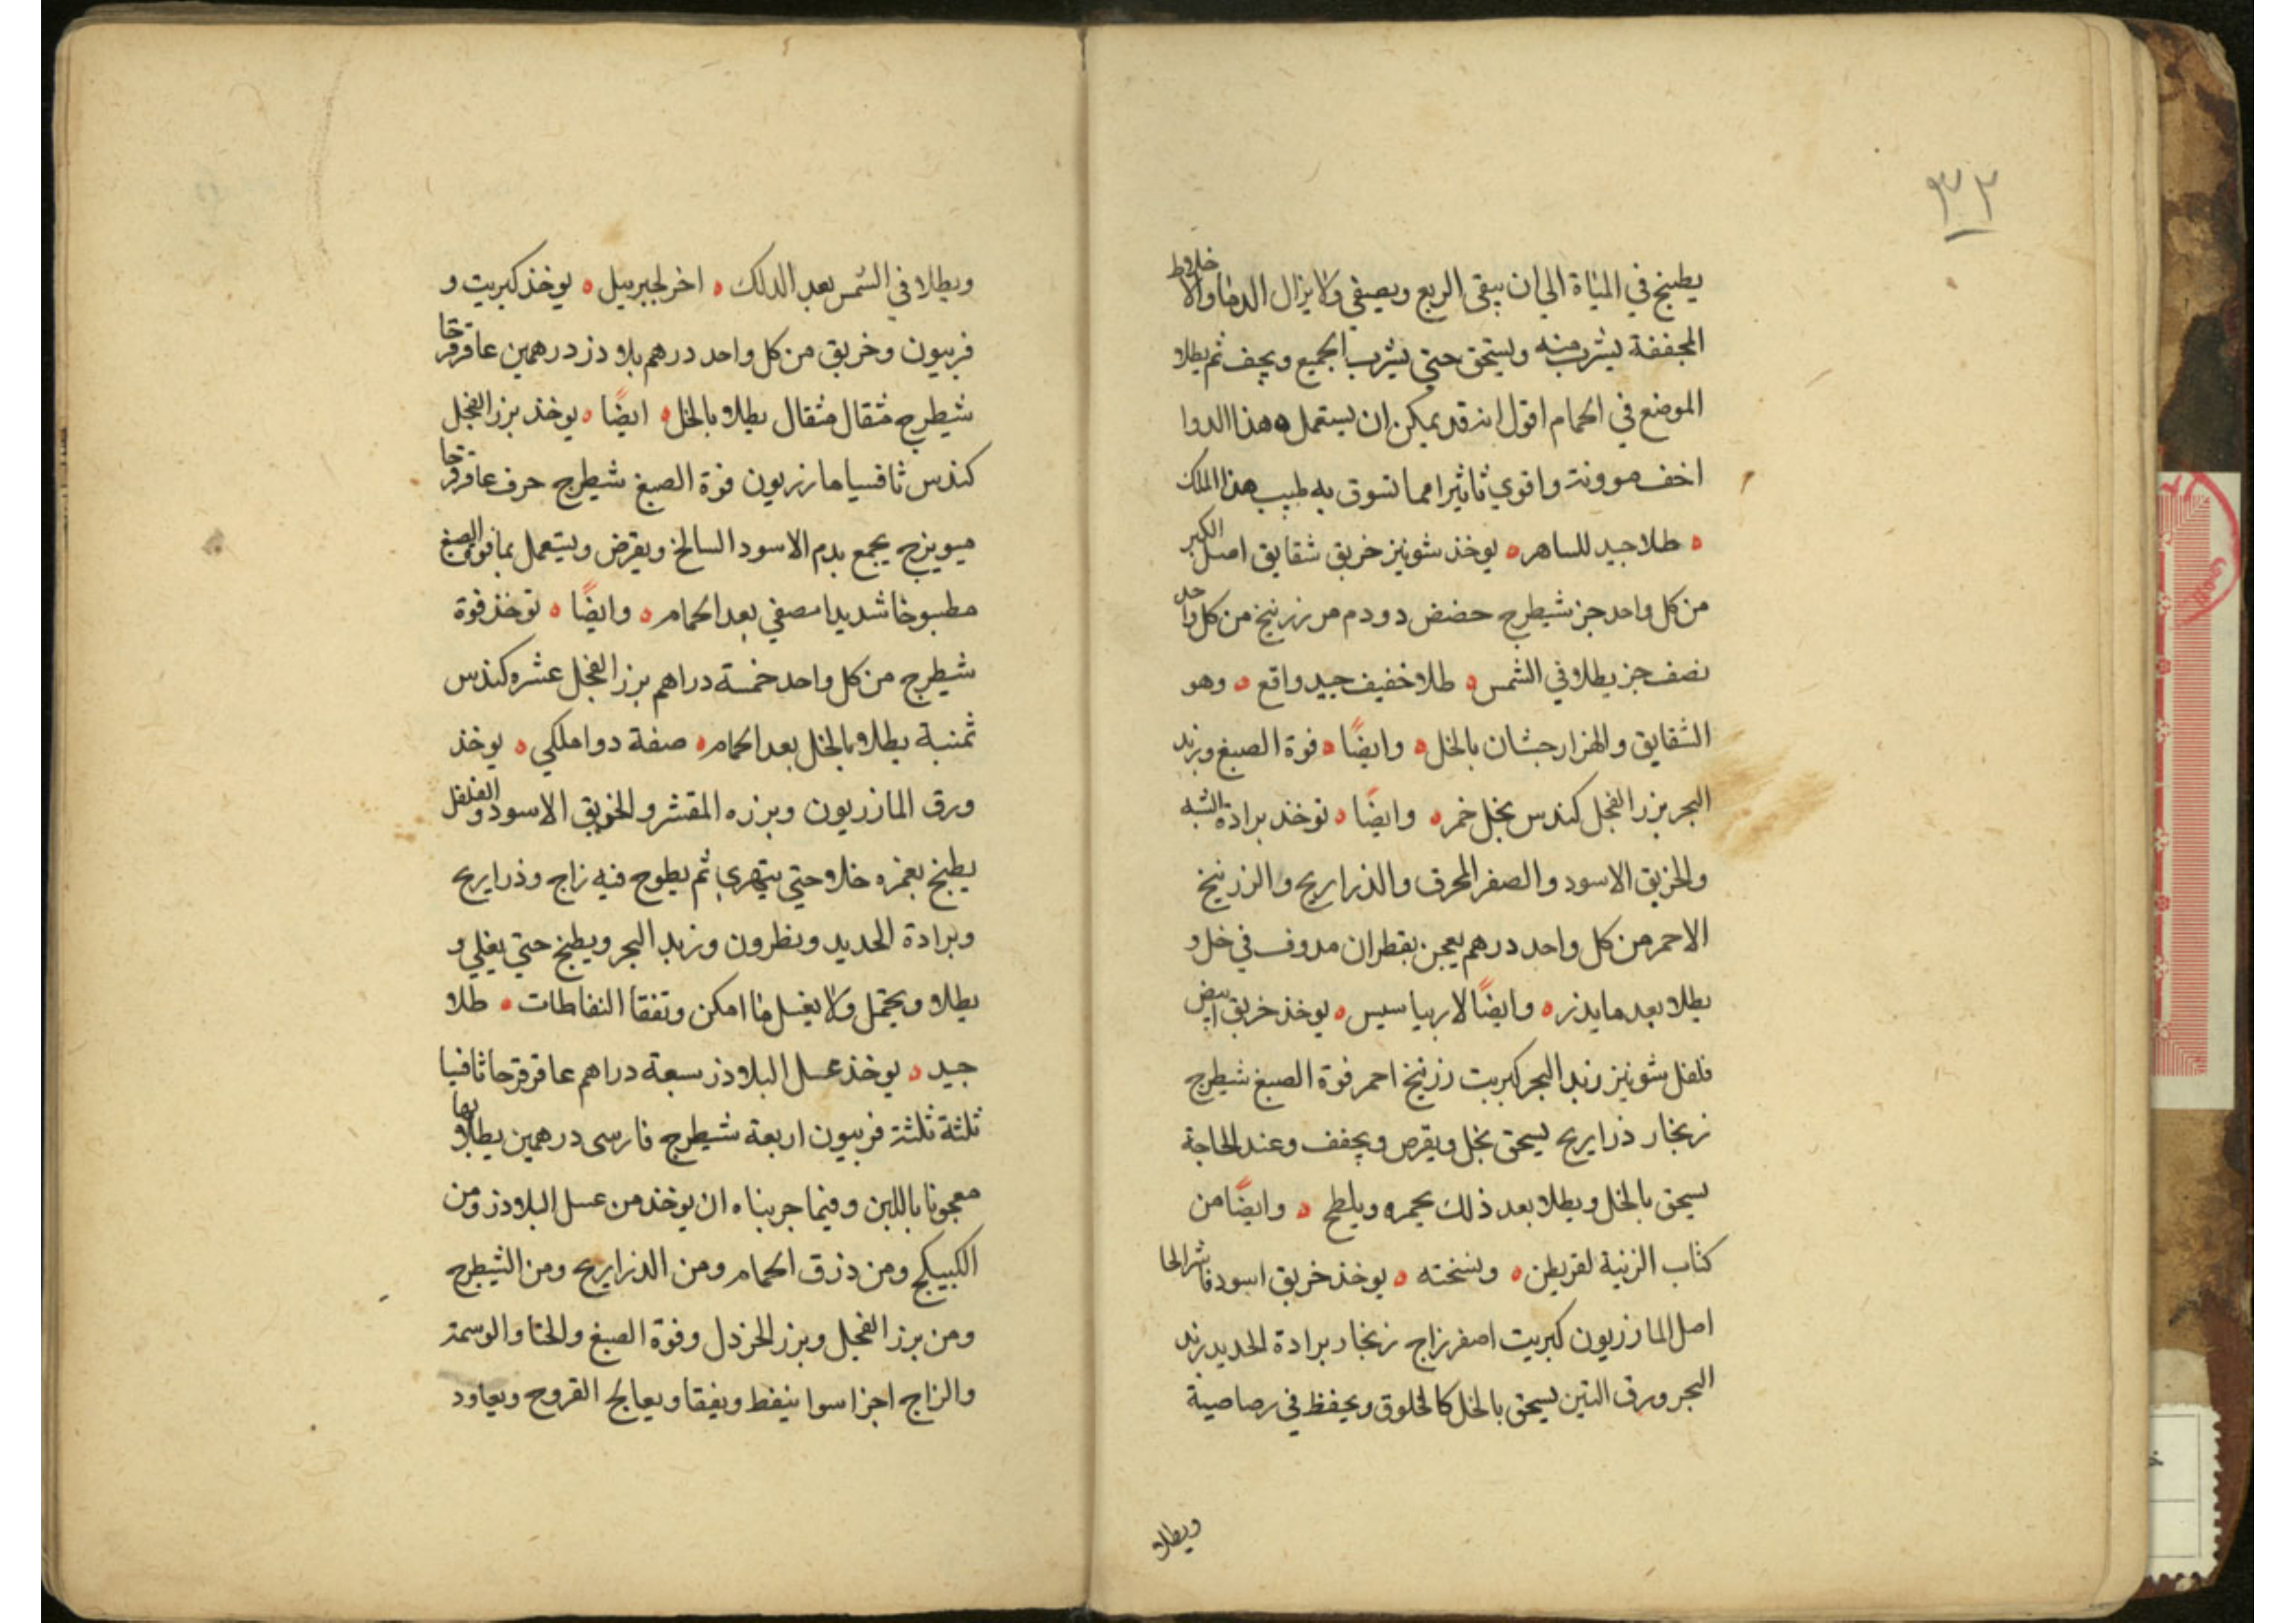 ٣٢
يطبخ في المثاة الي ان يبقي الربع ويصفي ولا يزال الدما والاخلاط
المجففة يشرب منه ويسحق حتي يشرب الجميع ويجف ثم يطلا
الموضع في الحمام اقول انه قد يمكن ان يستعمل ه هذا الدوا
اخف موونة واقوي تاثيرا مما تسوق به طبيب هذا الملك
ه طلا جيد للساهر ه يوخذ شونيز خربق شقايق اصل الكبر
من كل واحد جز شيطرج حضض دودم مر زرنيخ من كل واحد
نصف جز يطلا في الشمس ه طلا خفيف جيد واقع ه وهو
الشقايق والهزارجشان بالخل ه وايضًا ه فوة الصبغ وزبد
البحر بزر الفجل كندس بخل خمر ه وايضًا ه توخذ برادة الشبه
والخربق الاسود والصفر المحرق والذراريح والزرنيخ
الاحمر من كل واحد درهم يعجن بقطران مدوف في خل و
يطلا بعد ما يذر ه وايضًا لارياسيس ه يوخذ خربق ابيض
فلفل شونيز زبد البحر كبريت زرنيخ احمر فوة الصبغ شيطرج
زنجار ذرايريح يسحق بخل ويقرص ويجفف وعند الحاجة
يسحق بالخل ويطلا بعد ذلك يحمره ويلطح ه وايضًا من
كتاب الزينة لقريطن ه ونسخته ه يوخذ خربق اسود فاشرا لحا
اصل المازريون كبريت اصفر زاج زنجار برادة الحديد زبد
البحر ورق التين يسحق بالخل كالخلوق ويحفظ في رصاصية
ويطلا
ويطلا في الشمس بعد الدلك ه اخر لجبربيل ه يوخذ كبريت و
فربيون وخربق من كل واحد درهم بلادز درهمين عاقرقرحا
شيطرج مثقال مثقال يطلا بالخل ه ايضًا ه يوخذ بزر الفجل
كندس ثافسيا مازريون فوة الصبغ شيطرج حرف عاقرقرحا
ميويزج يجمع بدم الاسود السالخ ويقرض ويستعمل بما فوة الصبغ
مطبوخا شديدا مصفي بعد الحمام ه وايضًا ه توخذ فوة
شيطرج من كل واحد خمسة دراهم بزر الفجل عشره كندس
ثمنية يطلا بالخل بعد الحمام ه صفة دوا ملكي ه يوخذ
ورق المازريون وبزره المقشر والخربق الاسود والفلفل
يطبخ بغمره خلا حتي يتهري ثم يطوح فيه زاج وذرايريح
وبرادة الحديد ونظرون وزبد البحر ويطبخ حتي يغلي و
يطلا ويحتمل ولا يغسل ما امكن وتفقا النفاطات ه طلا
جيد ه يوخذ عسل البلادز سبعة دراهم عاقرقرحا ثافيا
ثلثة ثلثة فربيون اربعة شيطرج فارسي درهمين يطلا بها و
معجونا باللبن وفيما جربناه ان يوخذ من عسل البلادز ومن
الكبيكج ومن دزق الحمام ومن الذراريح ومن الشيطرج
ومن بزر الفجل وبزر الخردل وفوة الصبغ والحنا والوسمة
والزاج اجزا سوا ينفط ويفقا ويعالج القروح ويعاود